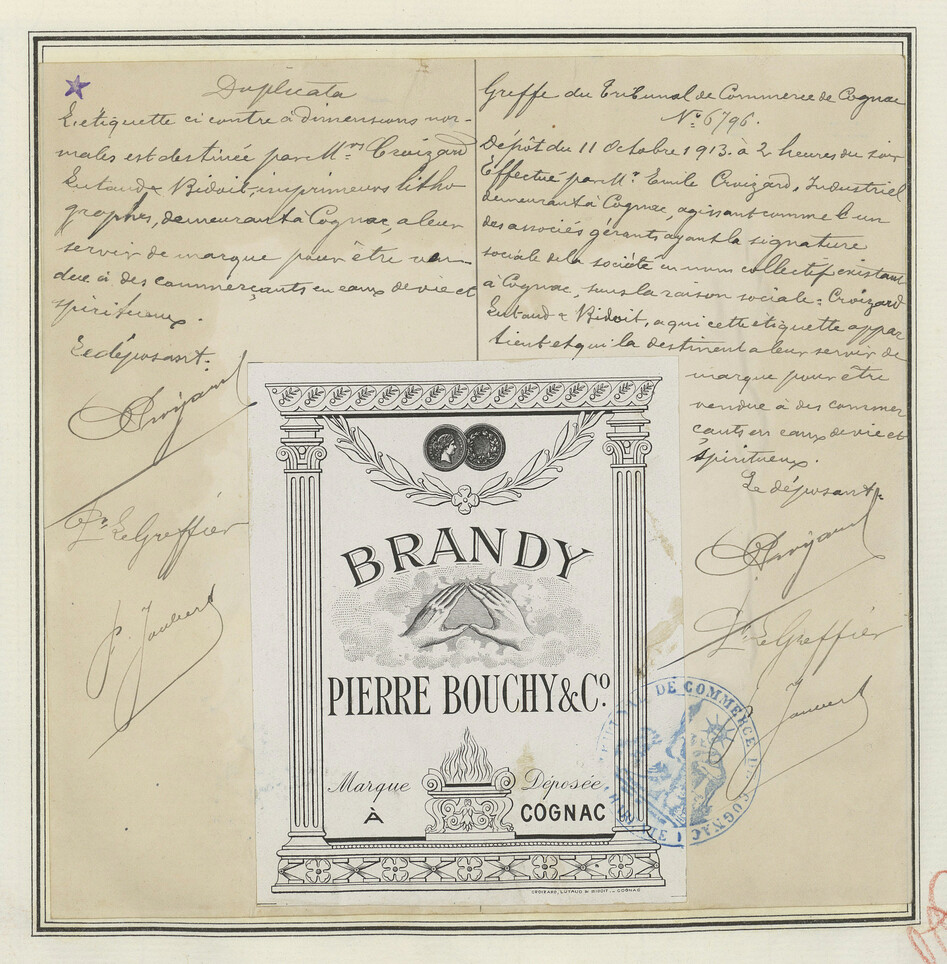 Duplicata
L'étiquette ci contre à dimensions nor-
males est destinée par M.rs Croizard
Lutaud & Bidoit, imprimeurs litho
graphes, demeurant à Cognac, a leur
servir de marque pour être ven-
due à des commerçants en eaux de vie et
spiritueux.
Le déposant.
Croizard
P.r Le Greffier
P. Joubert
Greffe du Tribunal de Commerce de Cognac
N.° 6796.
Dépôt du 11 Octobre 1913. à 2 heures du soir
Effectué par M.r Emile Croizard, Industriel
demeurant à Cognac, agissant comme l'un
des associés gérants ayant la signature
sociale de la société en nom collectif existant
à Cognac, sous la raison sociale: Croizard
Lutaud & Bidoit, a qui cette étiquette appar
tient et qui la destinent a leur servir de
marque pour être
vendue à des commer
çants en eaux de vie et
spiritueux.
Le déposant.
Croizard
P.r Le Greffier
Joubert
BRANDY
PIERRE BOUCHY & Cº.
Marque Déposée
À COGNAC
CROIZARD, LUTAUD & BIDOIT _ COGNAC
TRIBUNAL DE COMMERCE DE COGNAC